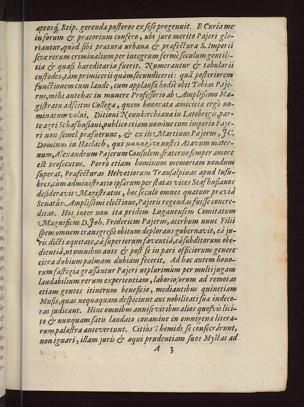 aptosq́; Reip. gerenda posteros ex sese progenuit. E Curia me-
insorum & prætorium confero, ubi jure merito Pajeri glo-
riantur, quod sibi prætura urbana & præfectura S. Imperii
seve rerum criminalium per integrum fermè seculum gentili-
tia & quasi hereditaria fuerit. Numerantur & tabularii
custodes, tàm primicerii quàm secundicerii: quâ posteriorem
functionem cum laude, cum applausu hodie obit Tobias Paje-
rus, mihi antehac in munere Professorio ab Amplissimo Ma-
gistratu adscitus Collega, quem honorata amicitia ergò no-
minatum volui. Ditioni Neunkirchianæ in Latobergii, par-
te agri Schafhusani, publice etiam nomine cum imperio Paje-
ri non semel præfuerunt, & ex iis Martinus Pajerus, JC.
Dominus in Haslach, qui nostri Atavum mater-
num, Alexandrum Pajerum Consulem, fraterno semper amore
est prosecutus. Porrò etiam hominum memoriam nondum
superat, Præfecturas Helvetiorum Transalpinas apud Insu-
bres, cum administratio ipsarum per statas vices Scafhusianos
desideravit Magistratus, hoc seculo omnes quatuor prævia
Senatûs Amplissimi electione, Pajeris regendas fuisse concre-
ditas. Hos inter non ita pridem Luganensem Comitatum
Magnificus D. Joh. Fridericus Pajerus, acerbum nunc Filii
spem omnem transgressi obitum deplorans gubernavit, eâ ju-
ris dicti æquitate, eâ superiorum faventiâ, eâ subditorum obe-
dientiâ, ut omnibus ante & post se in pari officiorum genere
citra dubium palmam dubiam fecerit. Ad hæc autem hono-
rum fastigia grassantur Pajeri utplurimum per multijugam
laudabilium rerum experientiam, laboriosorum ad remotas
etiam gentes itinerum beneficio, mediantibus quinetiam
Musis, quas nequaquam despiciunt aut nobilitati suæ indeco-
ras judicant. Hinc omnibus annisi viribus alios quosvis licti-
to & nunquam satis laudato conamine in omnigena litera-
rum palæstra antevertunt. Citius Themidi se consecrârunt,
non ignari, illam juris & æqui prudentiam suos Mystas ad
A 3